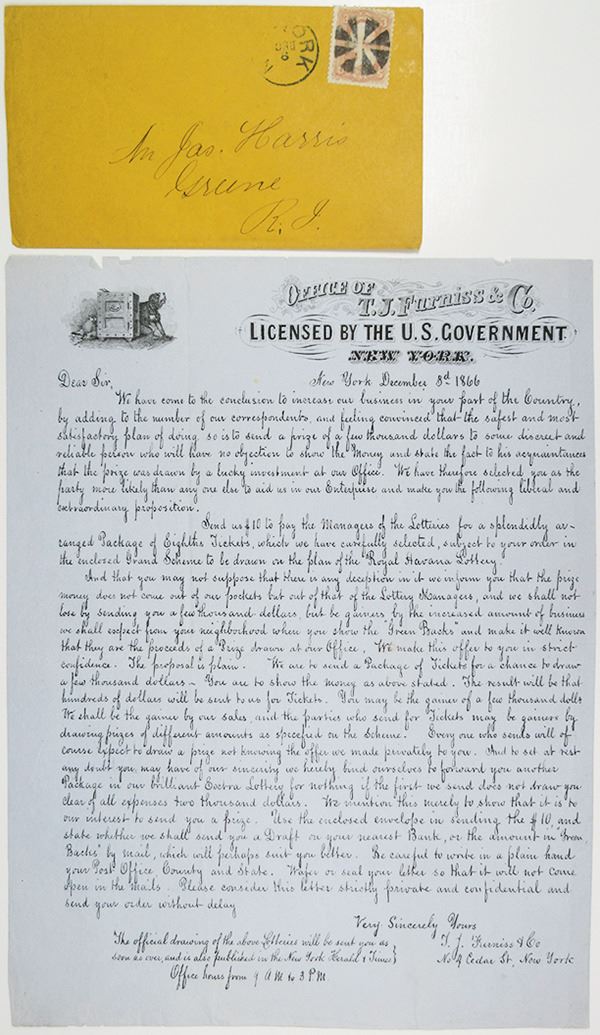 YORK
DEC
Mr Jas. Harris
Greene
R. I.
OFFICE OF
T. J. Furniss & Co.
LICENSED BY THE U.S. GOVERNMENT
NEW YORK.
Dear Sir, New York December 3d 1866
We have come to the conclusion to increase our business in your part of the Country,
by adding to the number of our correspondents, and feeling convinced that the safest and most
satisfactory plan of doing so is to send a prize of a few thousand dollars to some discreet and
reliable person who will have no objection to show the Money and state the fact to his acquaintances
that the prize was drawn by a lucky investment at our Office. We have therefore selected you as the
party more likely than any one else to aid us in our Enterprise and make you the following liberal and
extraordinary proposition.
Send us $10 to pay the Managers of the Lotteries for a splendidly ar-
ranged Package of Eighths Tickets, which we have carefully selected, subject to your order in
the enclosed Grand Scheme to be drawn on the plan of the Royal Havana Lottery.
And that you may not suppose that there is any deception in it we inform you that the prize
money does not come out of our pockets but out of that of the Lottery Managers, and we shall not
lose by sending you a few thousand dollars, but be gainers by the increased amount of business
we shall expect from your neighborhood when you show the "Green Backs" and make it well known
that they are the proceeds of a Prize drawn at our Office. We make this offer to you in strict
confidence. The proposal is plain. We are to send a Package of Tickets for a chance to draw
a few thousand dollars – You are to show the money as above stated. The result will be that
hundreds of dollars will be sent to us for Tickets. You may be the gainer of a few thousand dolls
We shall be the gainer by our sales, and the parties who send for Tickets may be gainers by
drawing prizes of different amounts as specified on the scheme. Every one who sends will of
course expect to draw a prize not knowing the offer we made privately to you. And to set at rest
any doubt you may have of our sincerity we hereby bind ourselves to forward you another
Package in our brilliant Extra Lottery for nothing if the first we send does not draw you
clear of all expenses two thousand dollars. We mention this merely to show that it is to
our interest to send you a prize. Use the enclosed envelope in sending the $10, and
state whether we shall send you a Draft on your nearest Bank, or the amount in "Green
Backs" by mail, which will perhaps suit you better. Be careful to write in a plain hand
your Post Office County and State. Wafer or seal your letter so that it will not come
open in the mails. Please consider this letter strictly private and confidential and
send your order without delay
Very Sincerely Yours
T. J. Furniss & Co
No 4 Cedar St, New York
The official drawing of the above Lotteries will be sent you as
soon as over, and is also published in the New York Herald & Times
Office hours from 9 A.M to 3 P.M.